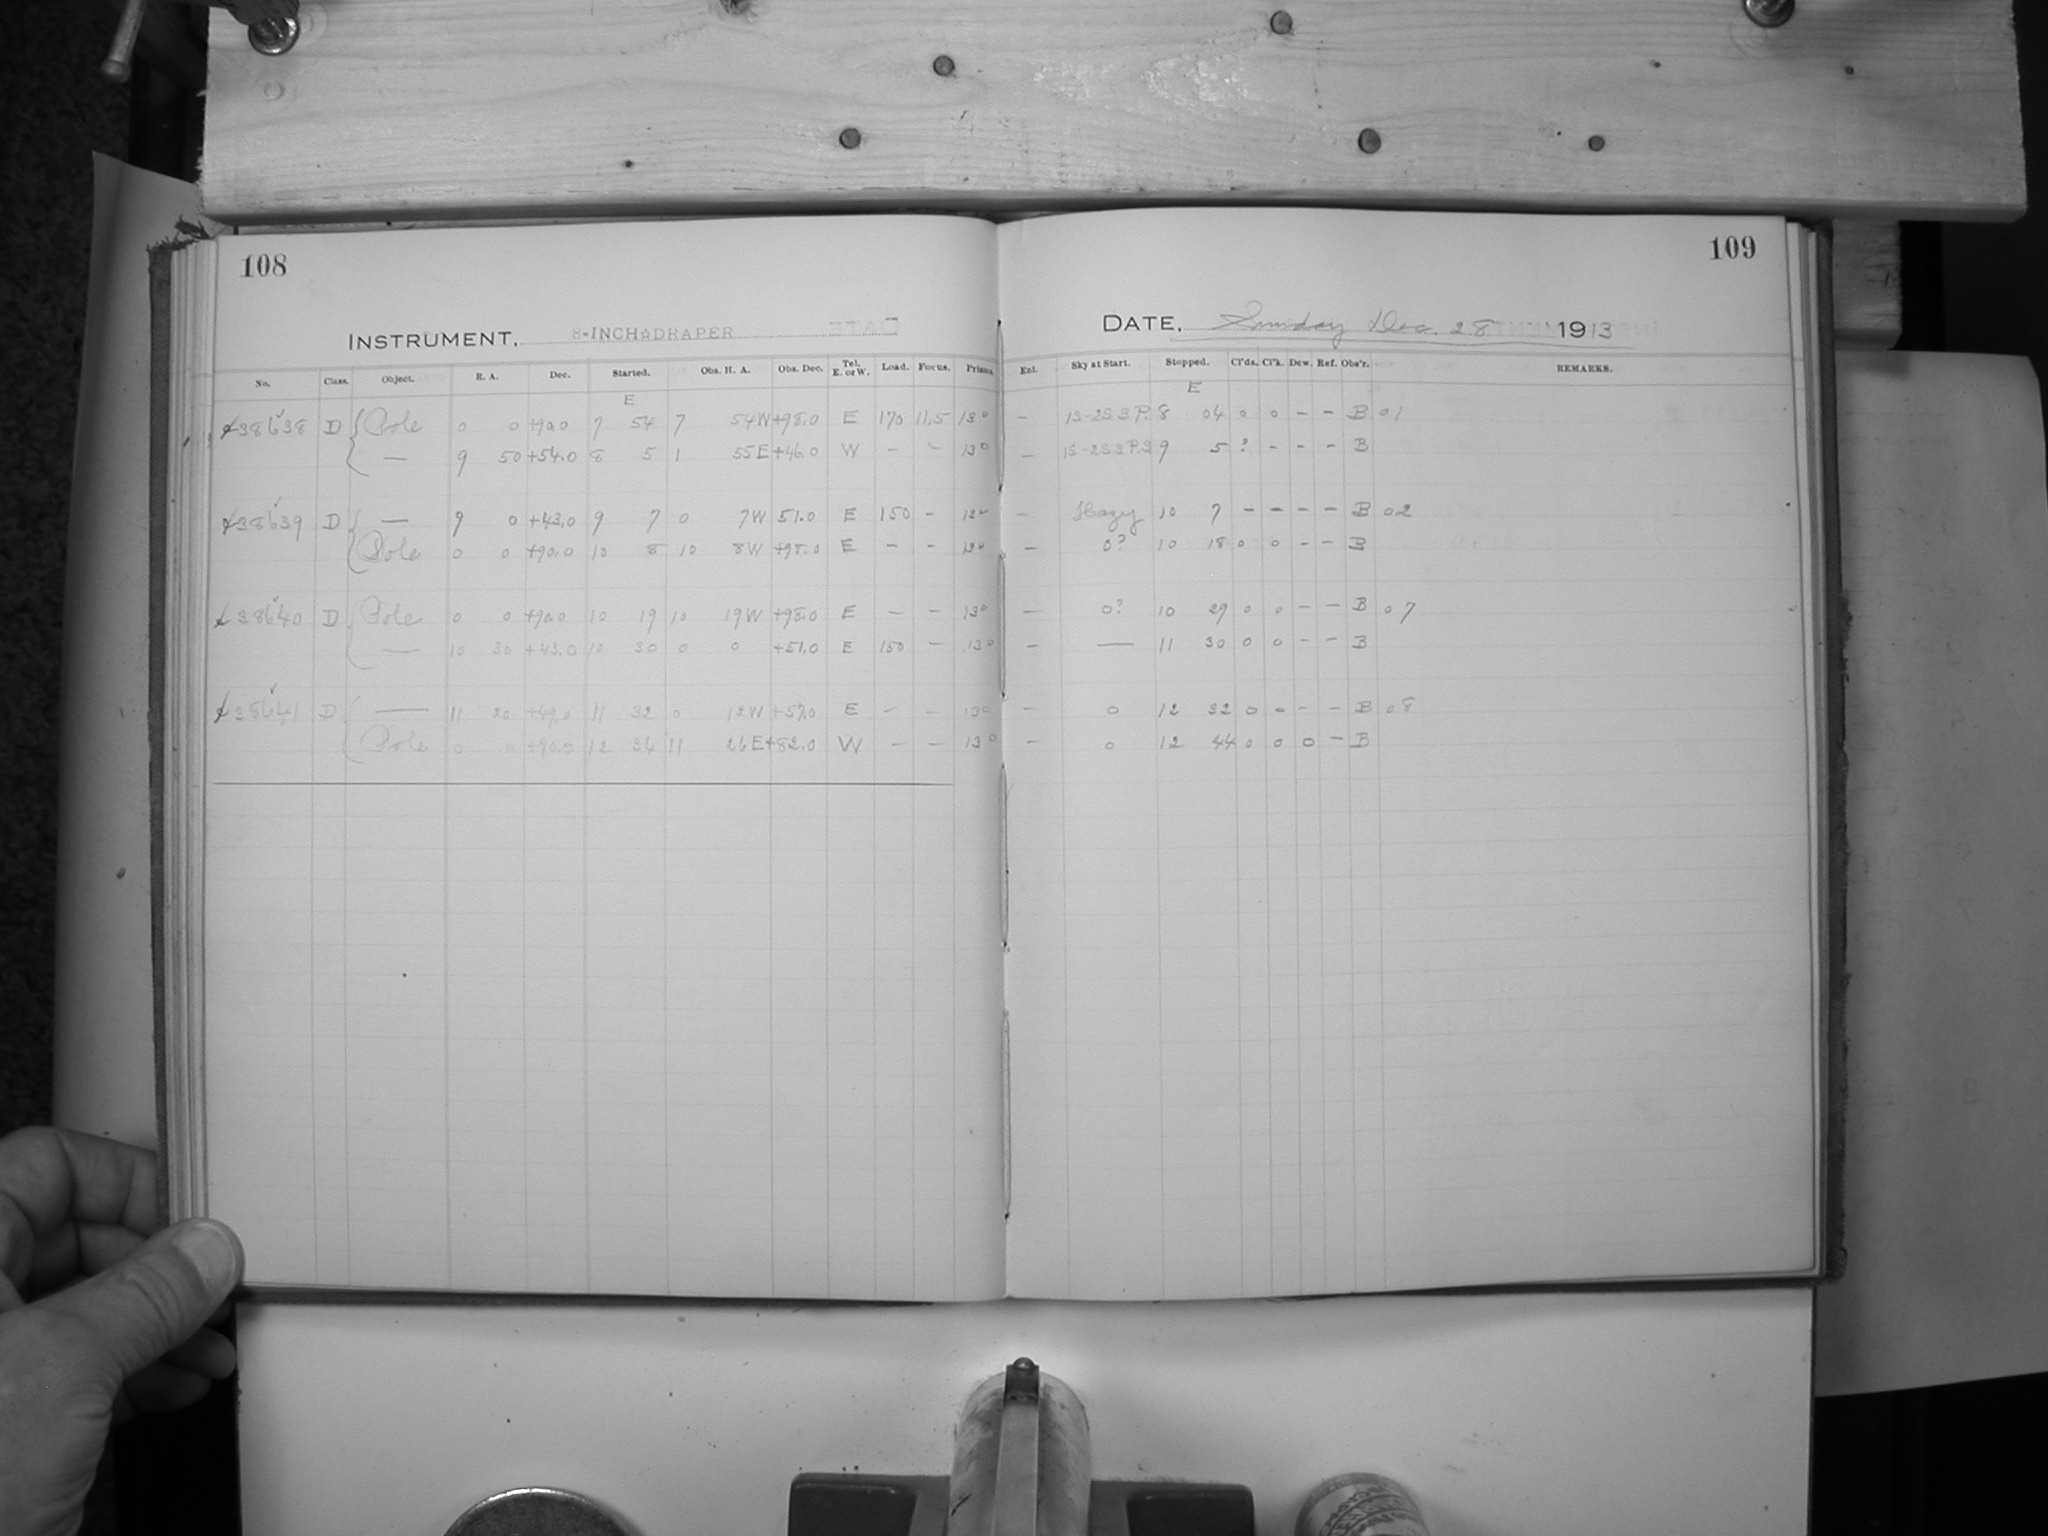 108
109
INSTRUMENT, 8-INCH DRAPER
DATE, Sunday Dec. 28 1913
No. Class. Object. R. A. Dec. Started. Obs. H. A. Obs. Dec. Tel. E. or W. Load. Focus. Prisms. Enl. Sky at Start. Stopped. Cl'ds. Cl'k. Dew. Ref. Obs'r. REMARKS.
E E
38638 D Pole 0 0 +90.0 7 54 7 54W +98.0 E 170 11.5 13° — 1S-2S.3.P. 8 04 0 0 - - B 01
— 9 50 +54.0 8 5 1 55E +46.0 W — - 13° — 1S-2S3P.S 9 5 ? - - - B
38639 D — 9 0 +43.0 9 7 0 7W 51.0 E 150 - 13° — Hazy 10 7 - - - - B 02
Pole 0 0 +90.0 10 8 10 8W +98.0 E — - 13° — 0? 10 18 0 0 - - B
38640 D Pole 0 0 +90.0 10 19 10 19W +98.0 E — - 13° — 0? 10 29 0 0 - - B 07
— 10 30 +43.0 10 30 0 0 +51.0 E 150 — 13° — — 11 30 0 0 - - B
38641 D — 11 20 +49.0 11 32 0 12W +57.0 E — - 13° — 0 12 32 0 - - - B 08
Pole 0 0 +90.0 12 34 11 26E +82.0 W — - 13° — 0 12 44 0 0 0 - B